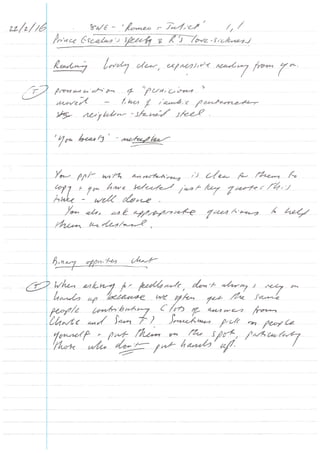 22/2/16 8NE - 'Romeo + Juliet' 1,1
Prince Escalus's speech & R's love-sickness
Reading Lovely clear, expressive reading from you.
T pronunciation of "pernicious"
moved - lines of iambic pentameter
neighbour-stained steel
'you beasts' - metaphor
Your ppt with annotations is clear for them to
copy + you have selected just key quotes this
time - well done.
You also ask appropriate questions to help
them understand.
Binary opposites chart
T When asking for feedback, don't always rely on
hands up because we often get the same
people contributing (lots of answers from
Charlie and Sam T). Sometimes pick on people
yourself + put them on the spot, particularly
those who don't put hands up.